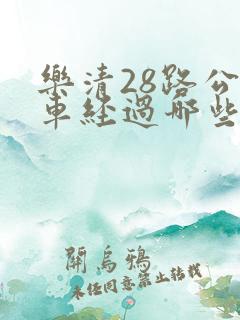 樂清28路公
車經過哪些
開烏鴉
未經同意禁止轉載